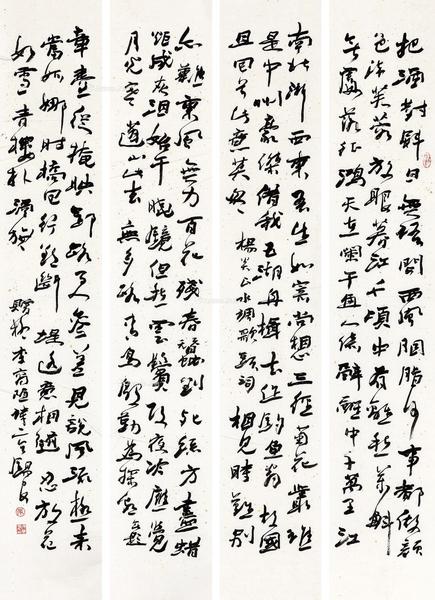 把酒對斜日無語問西風胭脂何事都做顏
色染芙蓉放眼暮江千頃中有離愁萬斛
無處落征鴻天在闌干角人倚醉醒中千萬里江
南北浙西東吾生如寄尚想三徑菊花叢誰
是中州豪傑借我五湖舟楫去作釣魚翁故國
且回首此意莫匆匆 楊炎正水調歌頭詞 相見時難別
亦難東風無力百花殘春蠶到死絲方盡蠟
炬成灰淚始干曉鏡但愁雲鬢改夜吟應覺
月光寒蓬山此去無多路青鳥殷勤為探看 無題
章臺從掩映郢路更參差見說風流極來
當婀娜時橋回行欲斷堤遠意相隨忍放花
如雪青樓撲酒旗 贈柳 李商隱詩二首